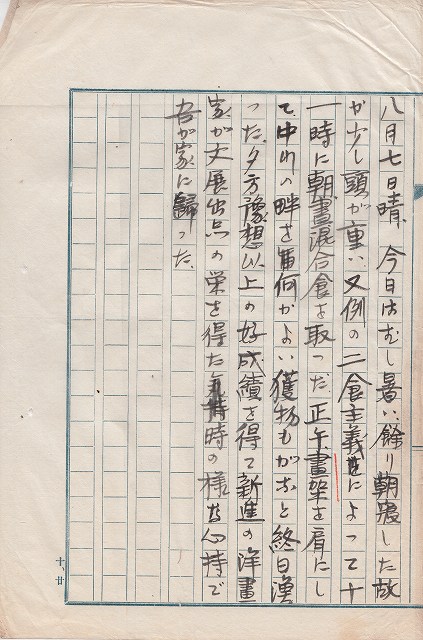 八月七日晴、今日はむし暑い、餘り朝寝した故
か少し頭が重い、又例の二食主義によって十
一時に朝晝混合食を取った。正午畫架を肩にし
て、中村の畔を何かよい獲物もがなと終日漁
った、夕方豫想以上の好成績を得て新進の洋畫
家が文展出品の栄を得た時の様な心持で
吾が家に歸った。
十、廿